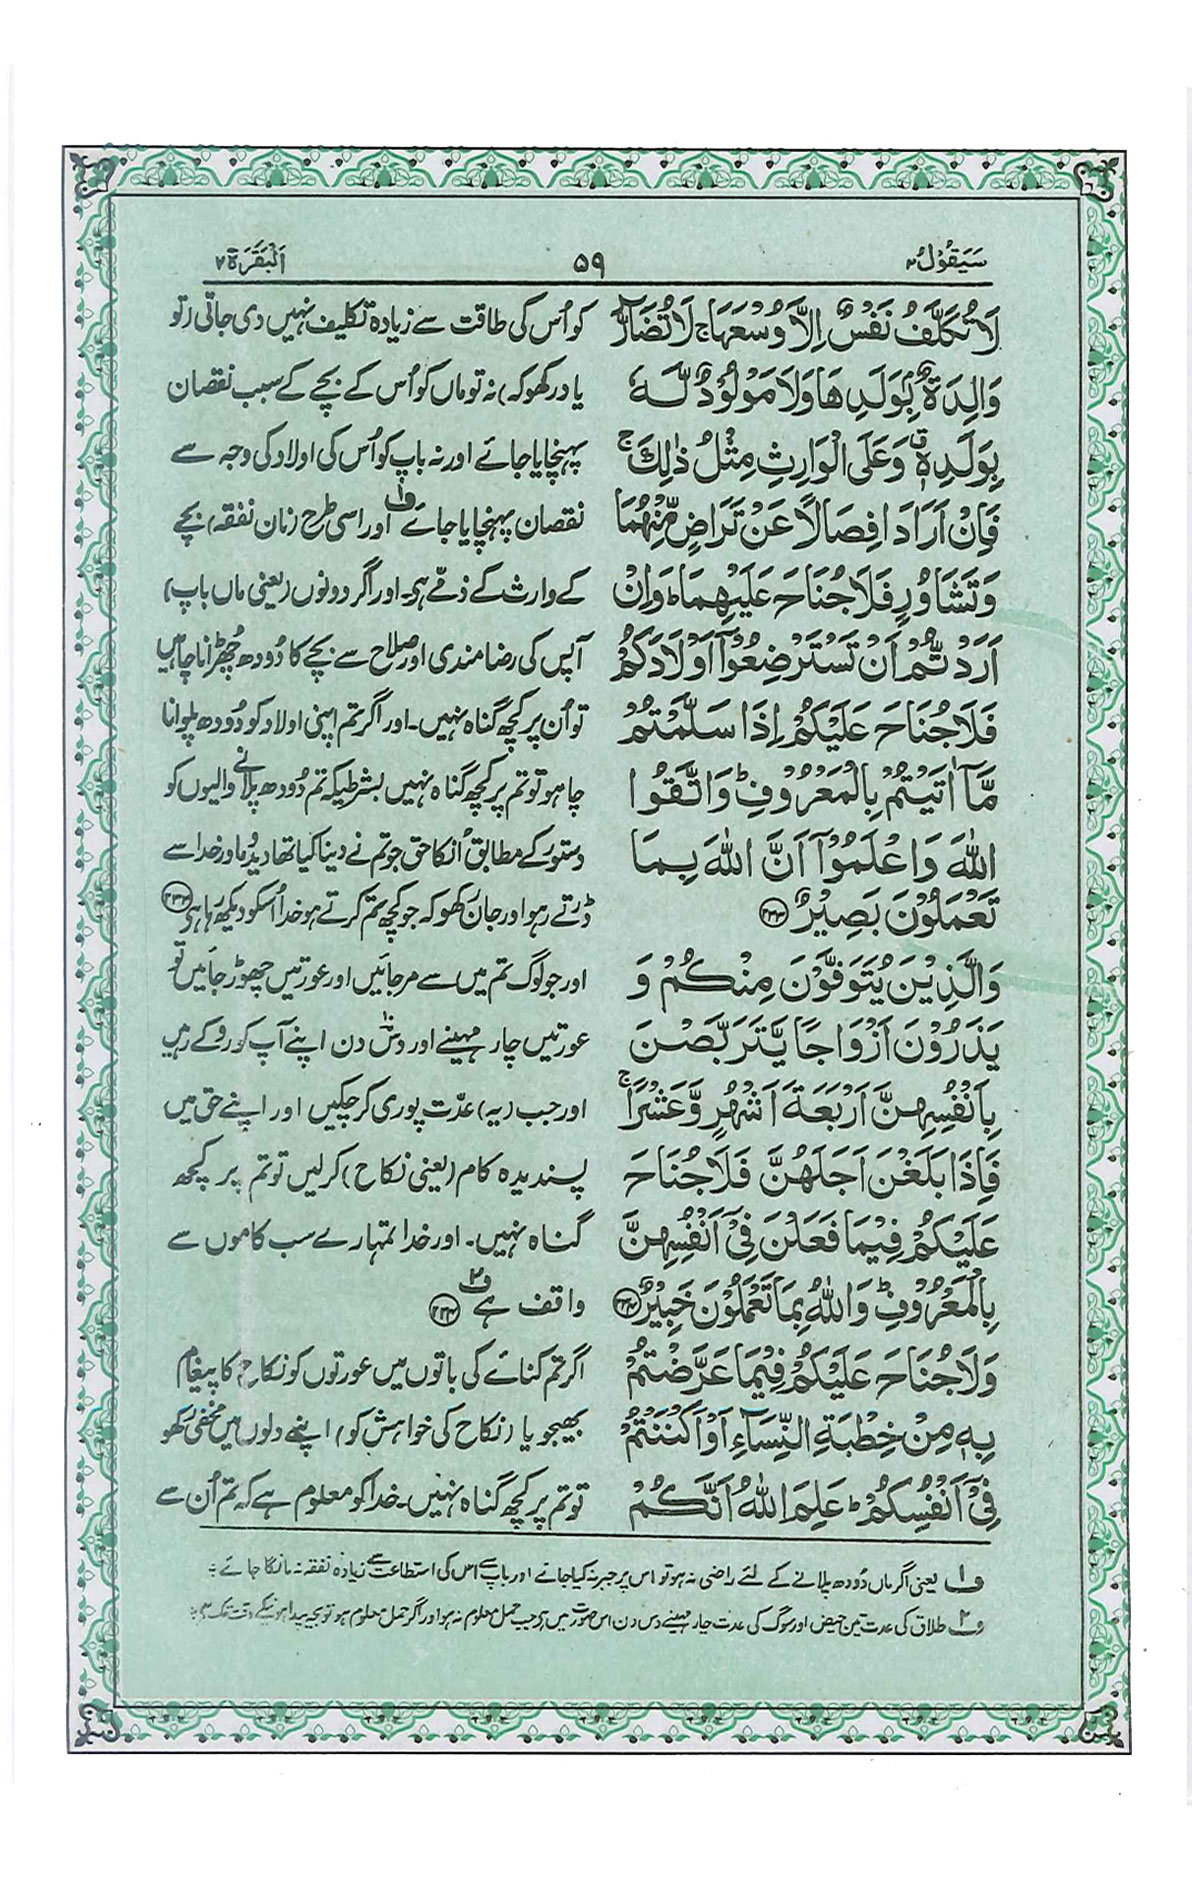 سَيَقُوْلُ ٢
٥٩
اَلْبَقَرَة ٢
لَا تُكَلَّفُ نَفْسٌ اِلَّا وُسْعَهَا ۚ لَا تُضَآرَّ
وَالِدَةٌۢ بِوَلَدِهَا وَلَا مَوْلُوْدٌ لَّهٗ
بِوَلَدِهٖ ۗ وَعَلَى الْوَارِثِ مِثْلُ ذٰلِكَ ۚ
فَاِنْ اَرَادَا فِصَالًا عَنْ تَرَاضٍ مِّنْهُمَا
وَتَشَاوُرٍ فَلَا جُنَاحَ عَلَيْهِمَا ؕ وَاِنْ
اَرَدْتُّمْ اَنْ تَسْتَرْضِعُوْٓا اَوْلَادَكُمْ
فَلَا جُنَاحَ عَلَيْكُمْ اِذَا سَلَّمْتُمْ
مَّآ اٰتَيْتُمْ بِالْمَعْرُوْفِ ؕ وَاتَّقُوا
اللّٰهَ وَاعْلَمُوْٓا اَنَّ اللّٰهَ بِمَا
تَعْمَلُوْنَ بَصِيْرٌ ﴿٢٣٣﴾
وَالَّذِيْنَ يُتَوَفَّوْنَ مِنْكُمْ وَ
يَذَرُوْنَ اَزْوَاجًا يَّتَرَبَّصْنَ
بِاَنْفُسِهِنَّ اَرْبَعَةَ اَشْهُرٍ وَّعَشْرًا ۚ
فَاِذَا بَلَغْنَ اَجَلَهُنَّ فَلَا جُنَاحَ
عَلَيْكُمْ فِيْمَا فَعَلْنَ فِيْٓ اَنْفُسِهِنَّ
بِالْمَعْرُوْفِ ؕ وَاللّٰهُ بِمَا تَعْمَلُوْنَ خَبِيْرٌ ﴿٢٣٤﴾
وَلَا جُنَاحَ عَلَيْكُمْ فِيْمَا عَرَّضْتُمْ
بِهٖ مِنْ خِطْبَةِ النِّسَآءِ اَوْ اَكْنَنْتُمْ
فِيْٓ اَنْفُسِكُمْ ؕ عَلِمَ اللّٰهُ اَنَّكُمْ
کو اُس کی طاقت سے زیادہ تکلیف نہیں دی جاتی (تو
یاد رکھو کہ) نہ تو ماں کو اُس کے بچے کے سبب نقصان
پہنچایا جائے اور نہ باپ کو اُس کی اولاد کی وجہ سے
نقصان پہنچایا جائے ف۱ اور اسی طرح (نان نفقہ) بچے
کے وارث کے ذمّے ہی۔ اور اگر دونوں (یعنی ماں باپ)
آپس کی رضامندی اور صلاح سے بچے کا دُودھ چُھڑانا چاہیں
تو اُن پر کچھ گناہ نہیں۔ اور اگر تم اپنی اولاد کو دُودھ پلوانا
چاہو تو تم پر کچھ گناہ نہیں بشرطیکہ تم دُودھ پلانے والیوں کو
دستور کے مطابق اُنکا حق جو تم نے دینا کیا تھا دیدو اور خدا سے
ڈرتے رہو اور جان رکھو کہ جو کچھ تم کرتے ہو خدا اُسکو دیکھ رہا ہی (۲۳۳)
اور جو لوگ تم میں سے مر جائیں اور عورتیں چھوڑ جائیں تو
عورتیں چار مہینے اور دس دن اپنے آپ کو روکے رہیں
اور جب (یہ) عدّت پوری کر چکیں اور اپنے حق میں
پسندیدہ کام (یعنی نکاح) کرلیں تو تم پر کچھ
گناہ نہیں۔ اور خدا تمہارے سب کاموں سے
واقف ہے ف۲ (۲۳۴)
اگر تم کنائے کی باتوں میں عورتوں کو نکاح کا پیغام
بھیجو یا (نکاح کی خواہش کو) اپنے دلوں میں مخفی رکھو
تو تم پر کچھ گناہ نہیں۔ خدا کو معلوم ہے کہ تم اُن سے
ف۱ یعنی اگر ماں دُودھ پلانے کے لئے راضی نہ ہو تو اس پر جبر نہ کیا جائے اور باپ سے اس کی استطاعت سے زیادہ نفقہ نہ مانگا جائے ؞
ف۲ طلاق کی عدت تین حیض اور سوگ کی عدت چار مہینے دس دن اس صورت میں ہی جب حمل معلوم نہ ہو اور اگر حمل معلوم ہو تو بچہ پیدا ہونیکے وقت تک ہی ؞